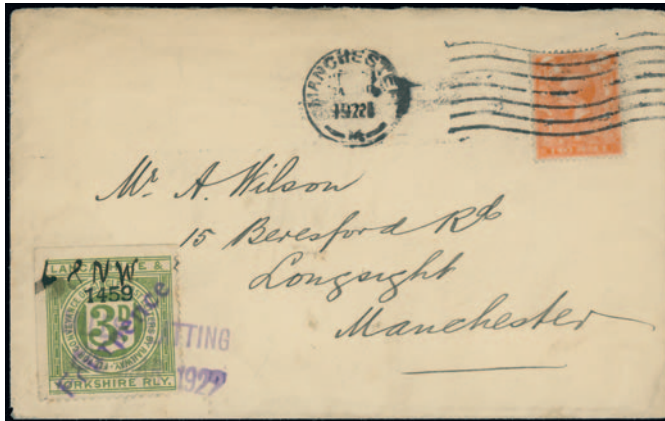 MANCHESTER
1922
Mr. A. Wilson
15 Beresford Rd
Longsight
Manchester
L & NW
LANCASHIRE &
1459
3D
YORKSHIRE RLY.
TTING
1922